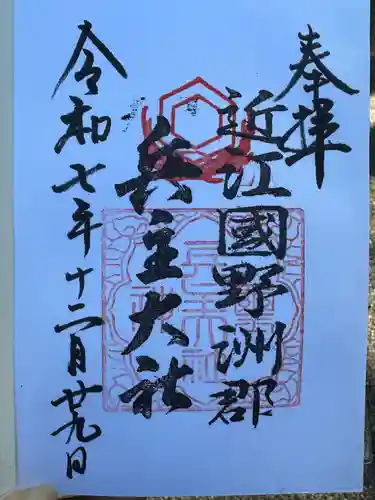 奉拝
近江國野洲郡
兵主大社
令和七年十二月廿九日